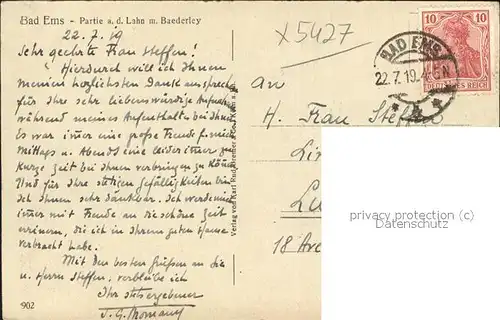 Bad Ems - Partie a. d. Lahn m. Baederley
x5427
22. 7. 19
Sehr geehrte Frau Steffen!
Hierdurch will ich Ihnen
meinen herzlichsten Dank aussprech.
für Ihre sehr liebenswürdige Aufnahme
während meines Aufenthaltes bei Ihnen
Es war immer eine große Freude f. mich
Mittags u. Abends eine leider immer zu
kurze Zeit bei Ihnen verbringen zu kön
Und für Ihre stetigen Gefälligkeiten bin
ich Ihnen sehr dankbar. Ich werde
immer mit Freude an die schöne Zeit
erinnern, die ich in Ihrem guten Hause
verbracht habe.
Mit den besten Grüßen an Sie
u. Herrn Steffen, verbleibe ich
Ihr stets ergebener
902
Verlag von Karl Rud.
10 10
DEUTSCHES REICH
BAD EMS
22.7.19. 4-5N
An
H. Frau Steffen
Lu
18 Ave
privacy protection (copyright)
Datenschutz